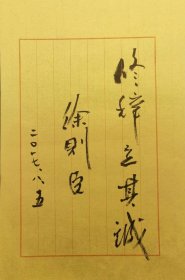 修辞立其诚
徐则臣
二〇一七、八、五